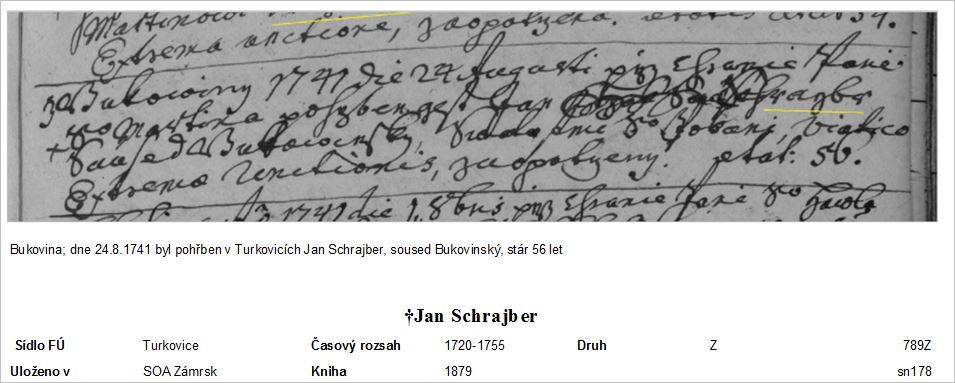 Extrema unctione, zaopatrzena. etatis
z Bukowiny 1741 die 24 Augusti przi Chramie Pane
So Martina pohrzben gest Jan Schrayber
Saused Bukowinsky,
Extremæ Unctionis, zaopatrzeny. etat: 56.
1741 die 1. 8bris przi Chramie Pane So
Bukovina; dne 24.8.1741 byl pohřben v Turkovicích Jan Schrajber, soused Bukovinský, stár 56 let
†Jan Schrajber
Sídlo FÚ Turkovice Časový rozsah 1720-1755 Druh Z 789Z
Uloženo v SOA Zámrsk Kniha 1879 sn178